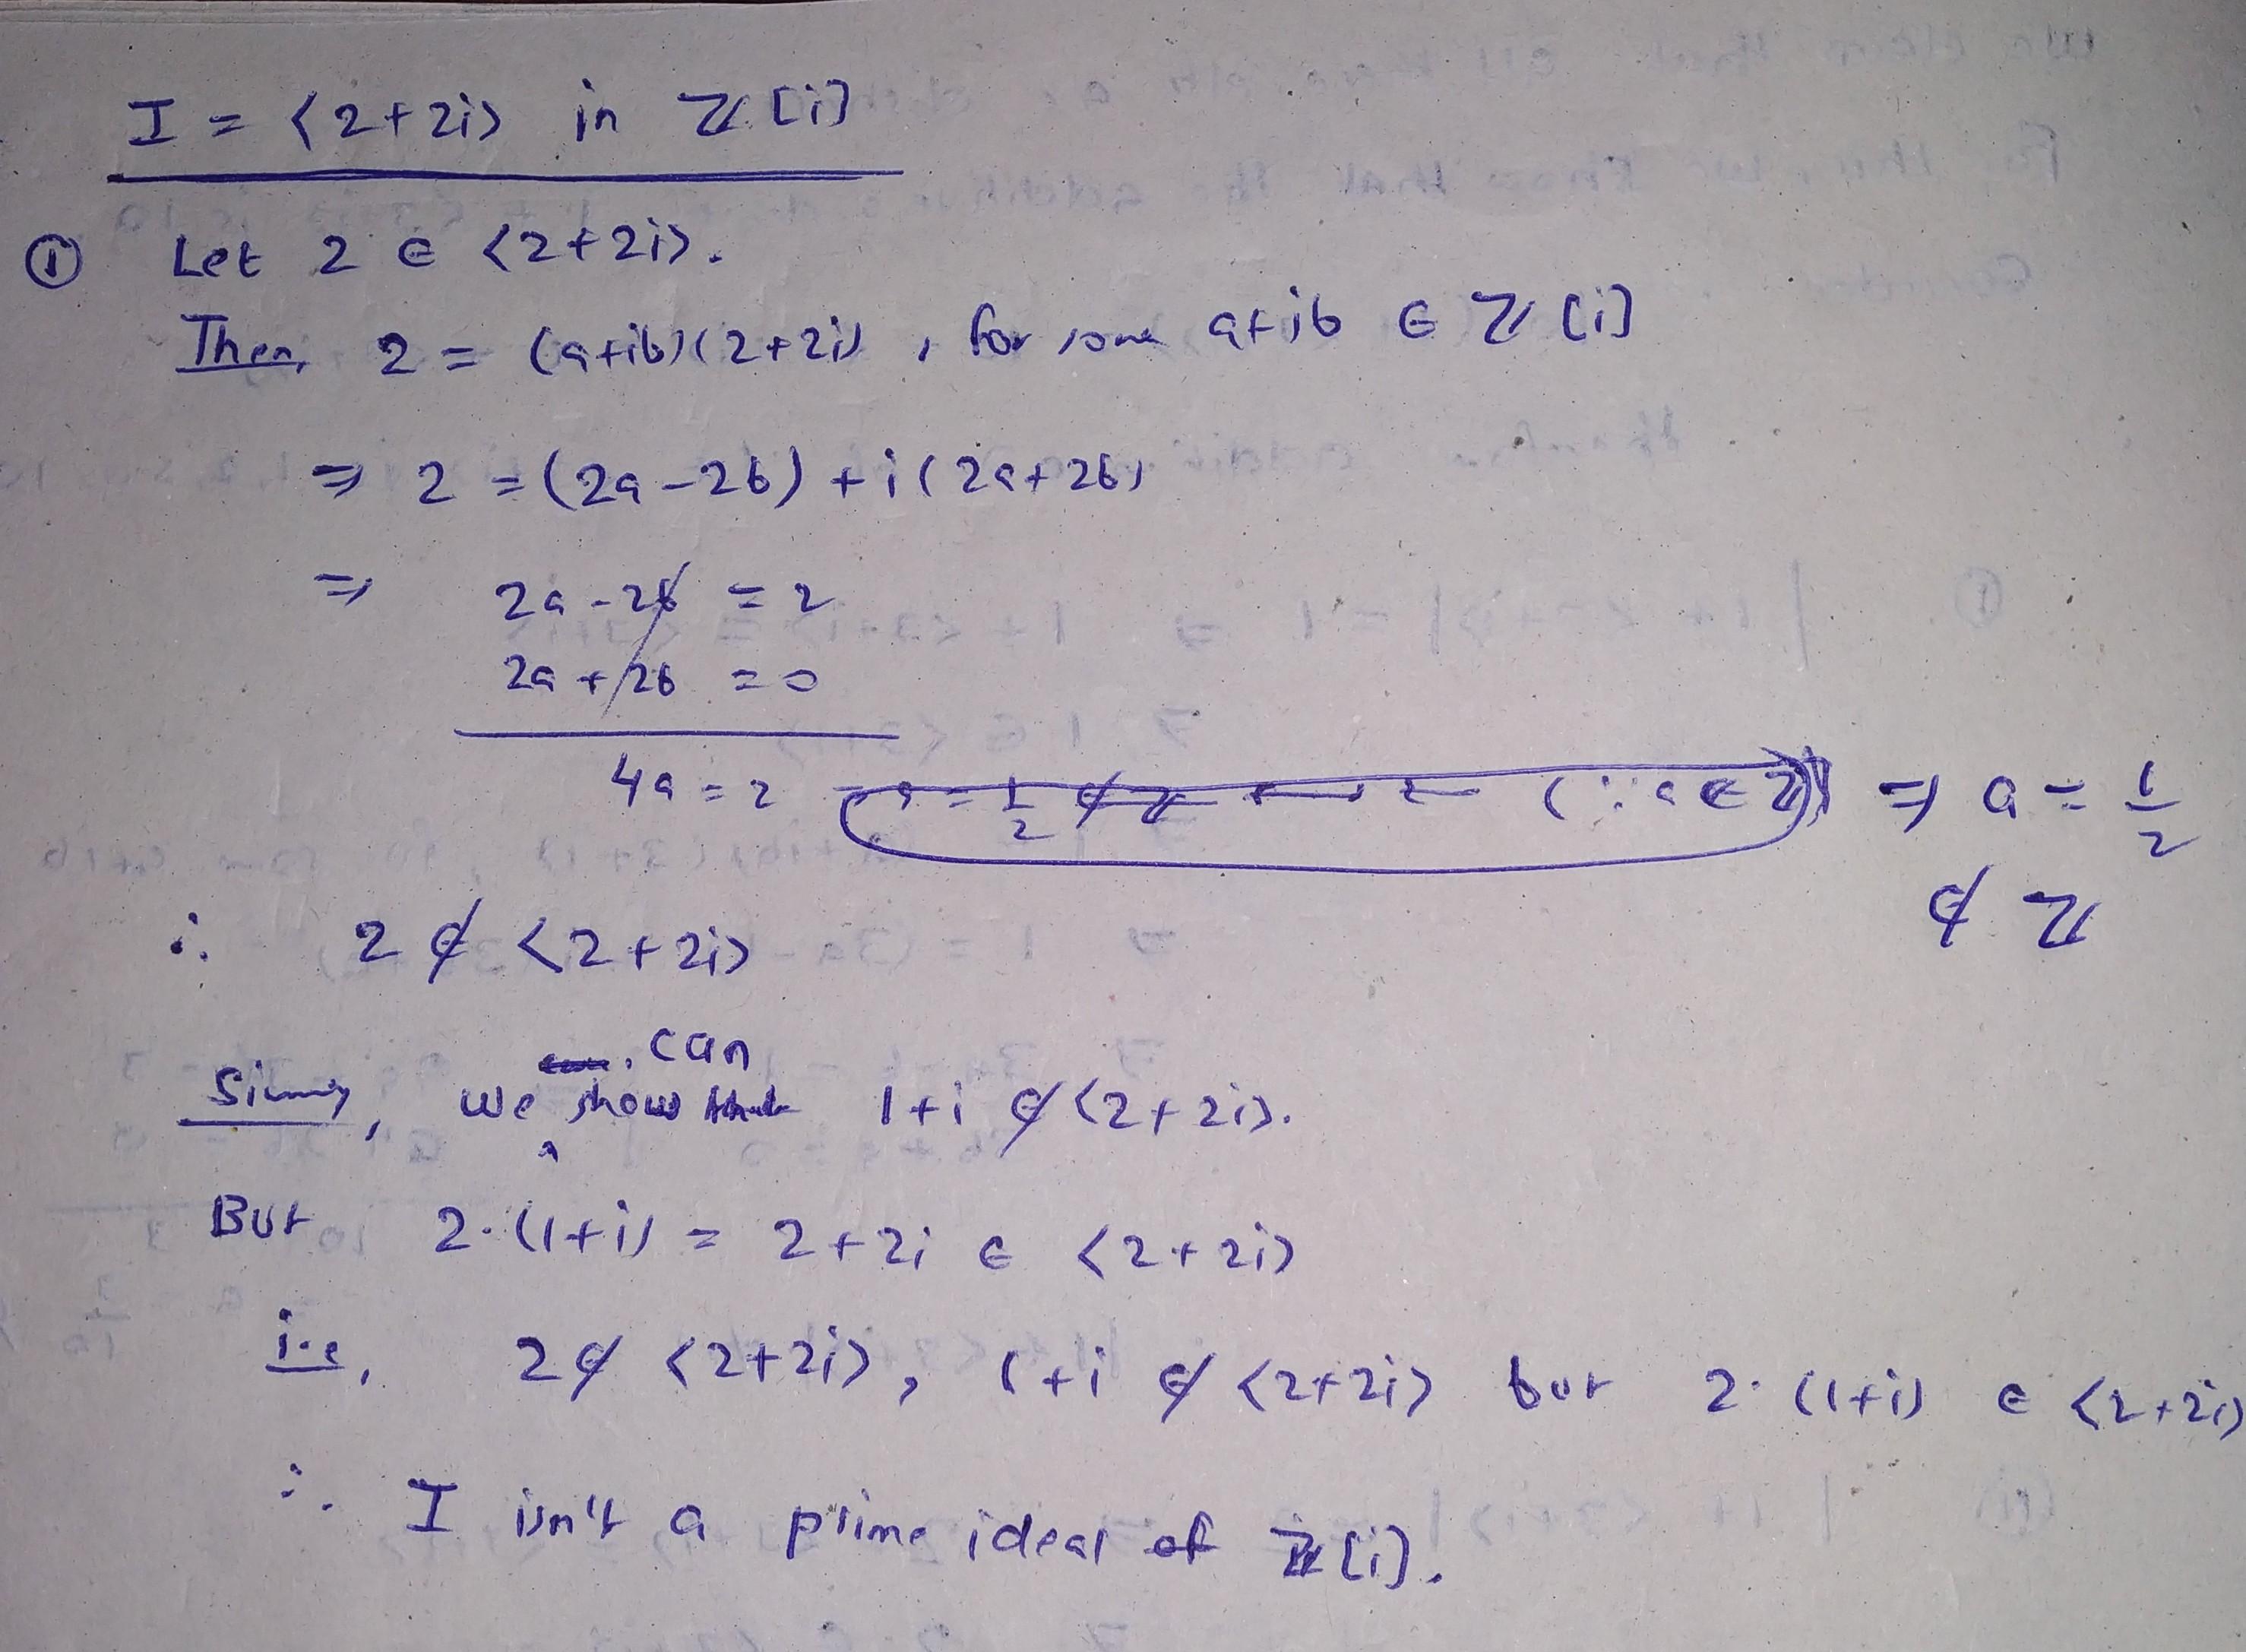 I = <2+2i> in ℤ[i]
① Let 2 ∈ <2+2i>.
Then, 2 = (a+ib)(2+2i) , for some a+ib ∈ ℤ[i]
⇒ 2 = (2a-2b) + i(2a+2b)
⇒ 2a-2b = 2
2a+2b = 0
4a = 2 ⇒ a = 1/2
∉ ℤ
∴ 2 ∉ <2+2i>
can
we show that 1+i ∉ <2+2i>.
But 2·(1+i) = 2+2i ∈ <2+2i>
i.e, 2 ∉ <2+2i>, 1+i ∉ <2+2i> but 2·(1+i) ∈ <2+2i>
∴ I isn't a prime ideal of ℤ[i].